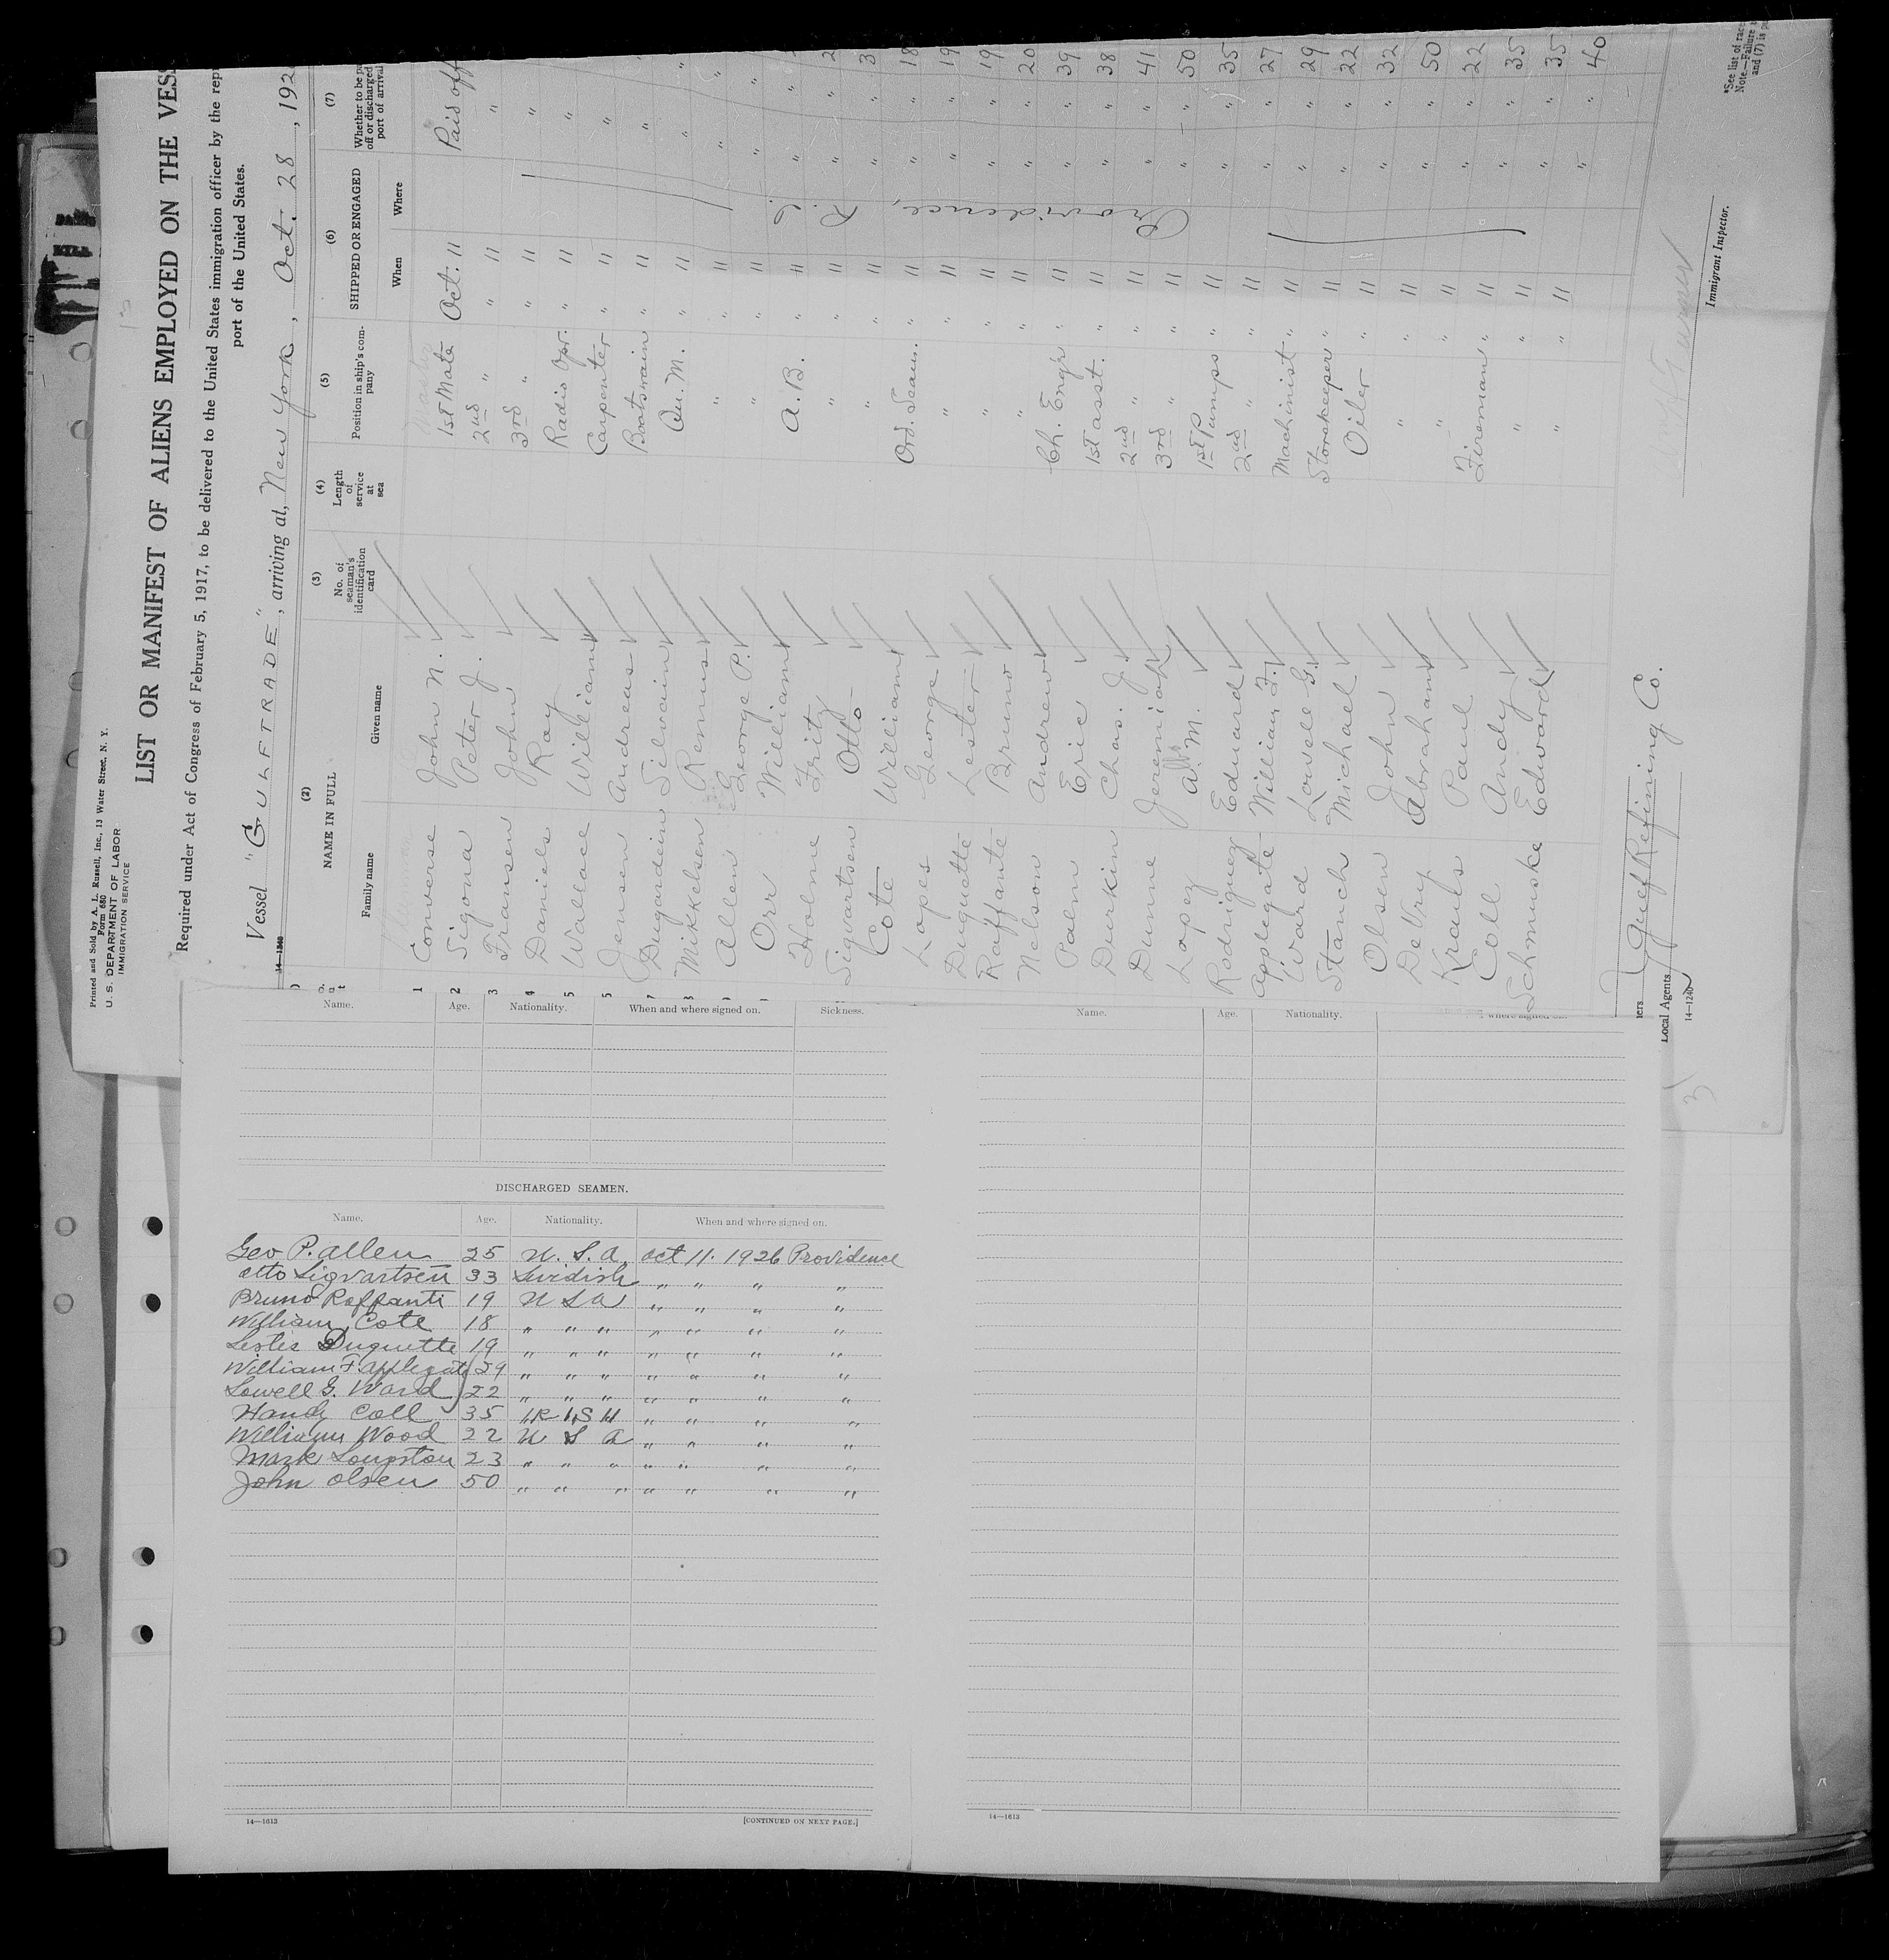 Printed and Sold by A. L. Russell, Inc., 13 Water Street, N. Y.
Form 680
U. S. DEPARTMENT OF LABOR
IMMIGRATION SERVICE
LIST OR MANIFEST OF ALIENS EMPLOYED ON THE VESS
Required under Act of Congress of February 5, 1917, to be delivered to the United States immigration officer by the repr
port of the United States.
Vessel "GULFTRADE", arriving at, New York, Oct. 28, 192
14—1240
(2) (3) (4) (5) (6) (7)
NAME IN FULL No. of seaman's identification card Length of service at sea Position in ship's company SHIPPED OR ENGAGED Whether to be pa off or discharged port of arrival
Family name Given name When Where
1 Converse John N. 1st Mate Oct. 11 Paid off
2 Sigona Peter J. 2nd " " 11 "
3 Fransen John 3rd " " 11 "
4 Daniels Ray Radio Opr. " 11 "
5 Wallace William Carpenter " 11 "
Jensen Andreas Boatswain " 11 "
7 Dugardein Silvain Qu. M. " 11 "
Mikkelsen Remus " " 11 "
Allen George P. " " 11 "
Orr William A. B. " 11 "
Holme Fritz " " 11 "
Sigvartsen Otto " " 11 "
Cote William Ord. Seam. " 11 " 18
Lopes George " " 11 " 19
Duquette Lester " " 11 " 19
Raffante Bruno " " 11 " 20
Nelson Andrew Ch. Engr " 11 " 39
Palm Eric 1st asst. " 11 " 38
Durkin Chas. J. 2nd " " 11 " 41
Dunne Jeremiah 3rd " " 11 " 50
Lopez A. M. 1st Pumps " 11 " 35
Rodriguez Eduard 2nd " " 11 " 27
Applegate William F. Machinist " 11 " 29
Ward Lowell G. Storekeeper " 11 " 22
Stanch Michael Oiler " 11 " 32
Olsen John " " 11 " 50
DeVry Abraham " " 11 " 22
Kraus Paul Fireman " 11 " 35
Coll Andy " " 11 " 35
Schmuske Edward " " 11 " 40
Providence, R. I.
Gulf Refining Co.
Local Agents
14—1240
Immigrant Inspector.
*See list of rac
Note.—Failure
and (7) is
Name. Age. Nationality. When and where signed on. Sickness.
Name. Age. Nationality. where signed on.
DISCHARGED SEAMEN.
Name. Age. Nationality. When and where signed on.
Geo P. Allen 25 U. S. A. Oct 11. 1926 Providence
Otto Sigvartsen 33 Swidish " " " "
Bruno Raffanti 19 U S A " " " "
William Cote 18 " " " " " " "
Leslie Duquette 19 " " " " " " "
William F. Applegate 29 " " " " " " "
Lowell G. Ward 22 " " " " " " "
Handy Coll 35 IRISH " " " "
William Wood 22 U S A " " " "
Mark 23 " " " " " " "
John Olsen 50 " " " " " " "
14—1613 [CONTINUED ON NEXT PAGE.]
14—1613